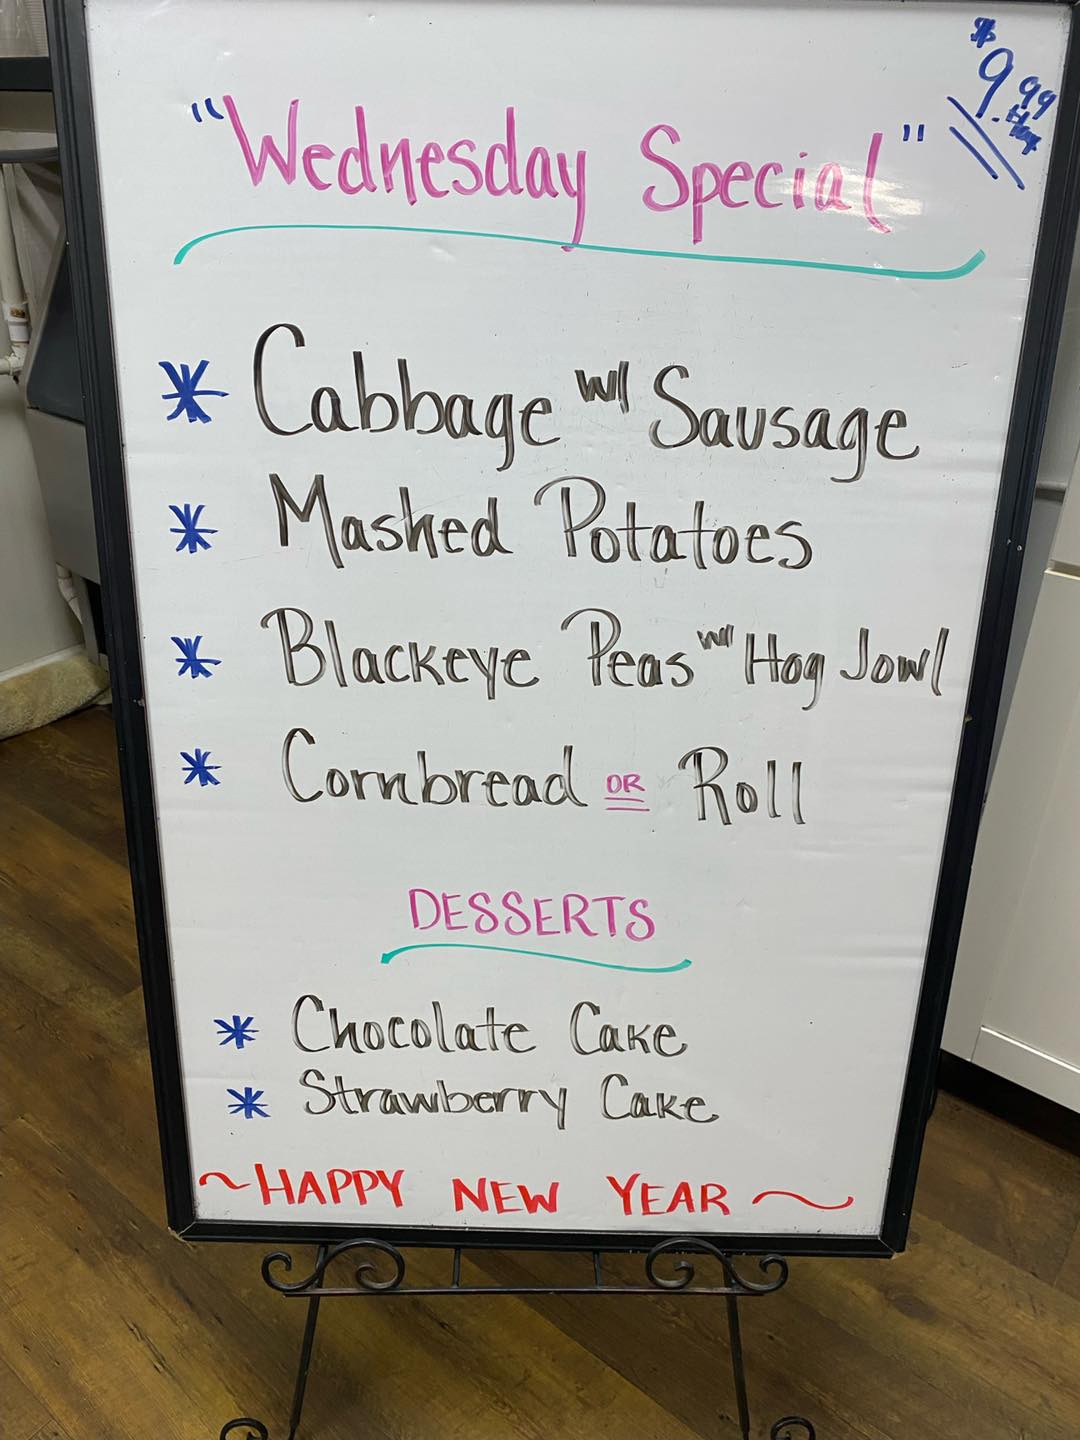 $9.99
+ tax
"Wednesday Special"
* Cabbage w/ Sausage
* Mashed Potatoes
* Blackeye Peas w/ Hog Jowl
* Cornbread OR Roll
DESSERTS
* Chocolate Cake
* Strawberry Cake
~HAPPY NEW YEAR~